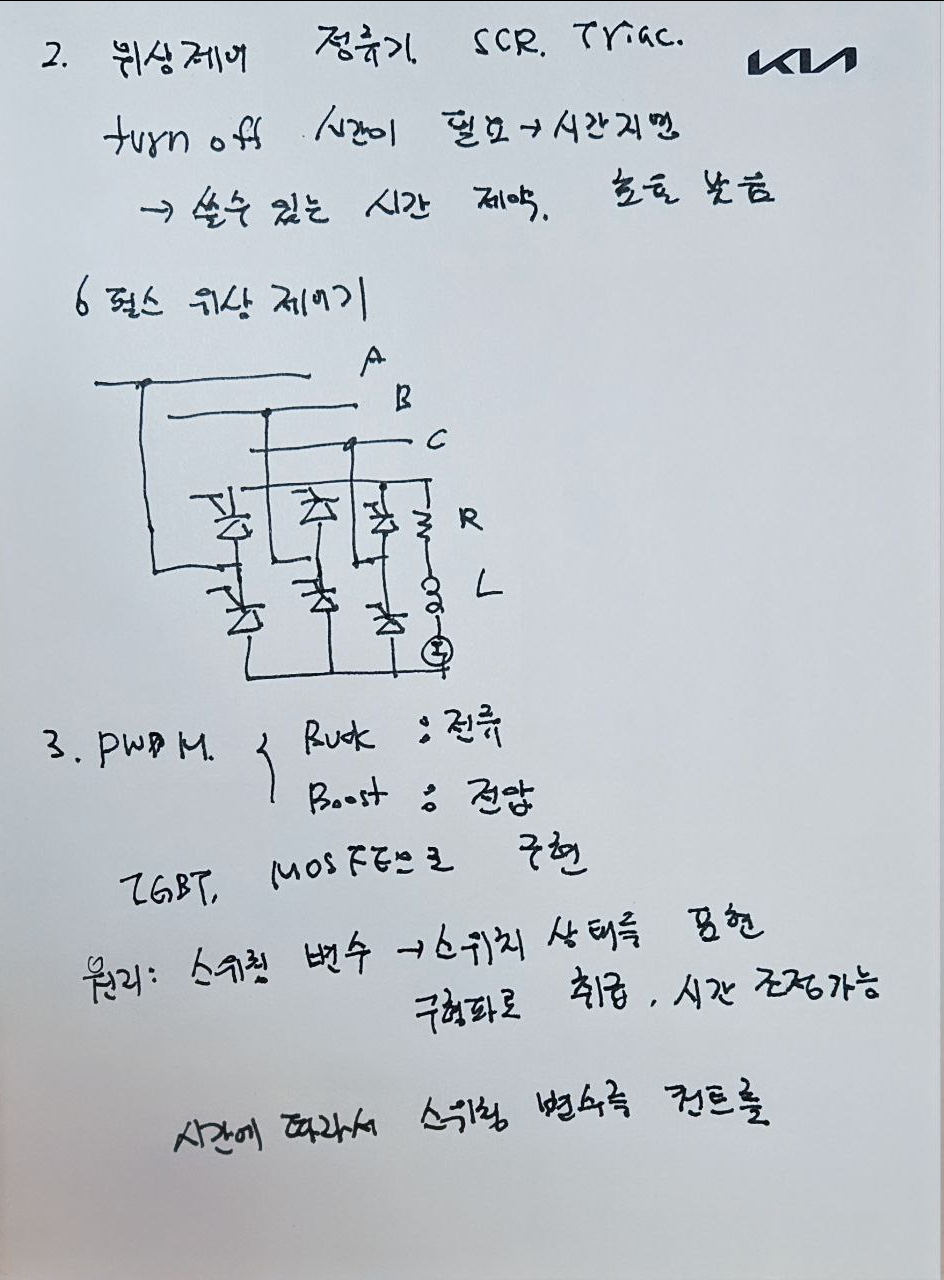 2. 위상제어 정류기. SCR. Triac.
KIA
turn off 시간이 필요 → 시간지연
→ 쓸수 있는 시간 제약. 효율 낮음
6 펄스 위상 제어기
A
B
C
R
L
3. PWM. { Buck : 전류
Boost : 전압
IGBT, MOSFET으로 구현
원리: 스위칭 변수 → 스위치 상태를 표현
구형파로 취급, 시간 조정가능
시간에 따라서 스위칭 변수를 컨트롤